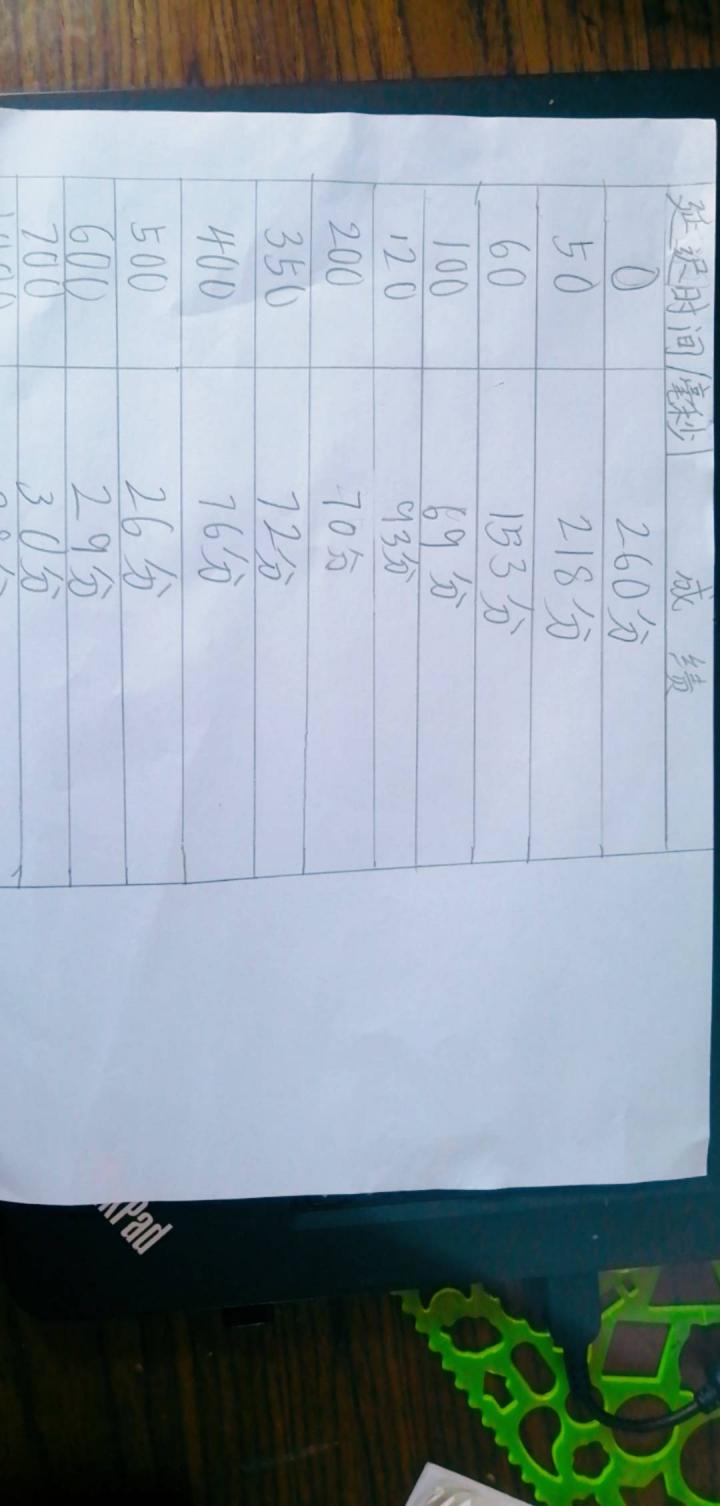 延迟时间/毫秒 成绩
0 260分
50 218分
60 153分
100 89分
120 93分
200 70分
350 72分
400 76分
500 26分
600 29分
700 30分
kPad